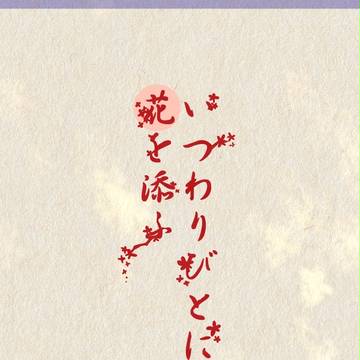 いつわりびとに
花を添ふ